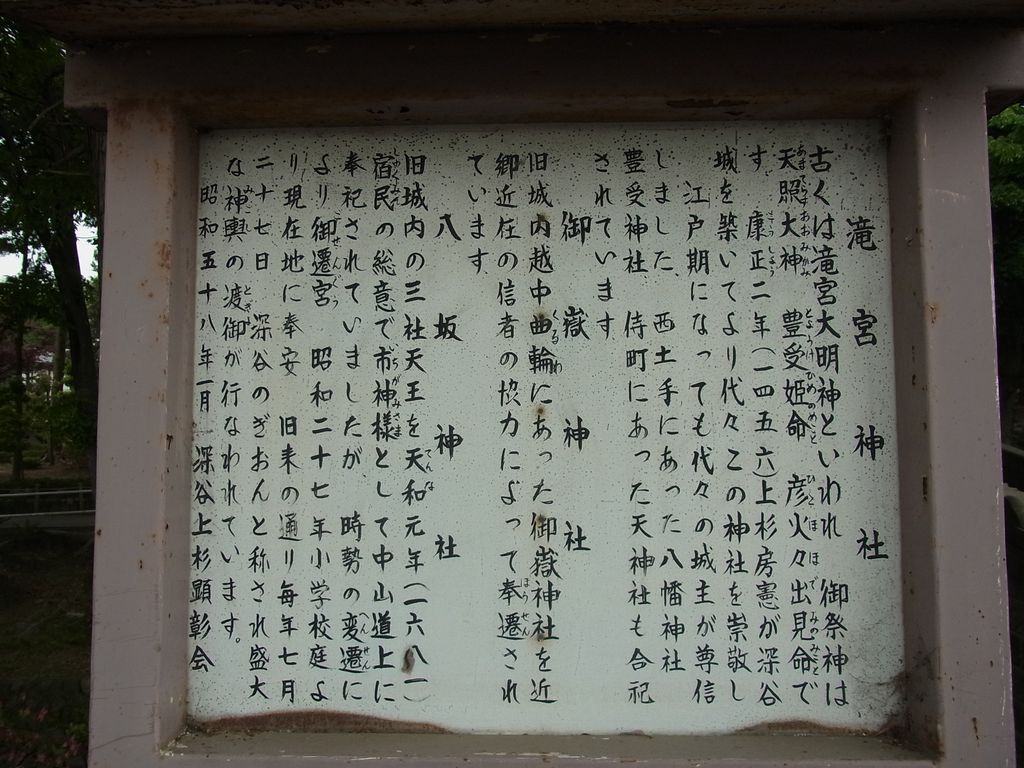 滝宮神社
古くは滝宮大明神といわれ 御祭神は
天照大神 豊受姫命 彦火々出見命で
す 康正二年(一四五六)上杉房憲が深谷
城を築いてより代々この神社を崇敬し
江戸期になっても代々の城主が尊信
しました 西土手にあった八幡神社
豊受神社 侍町にあった天神社も合祀
されています
御嶽神社
旧城内越中曲輪にあった御嶽神社を近
郷近在の信者の協力によって奉遷され
ています
八坂神社
旧城内の三社天王を天和元年(一六八一)
宿民の総意で市神様として中山道上に
奉祀されていましたが 時勢の変遷に
より御遷宮 昭和二十七年小学校庭よ
り現在地に奉安 旧来の通り毎年七月
二十七日 深谷のぎおんと称され盛大
な神輿の渡御が行なわれています。
昭和五十八年一月 深谷上杉顕彰会